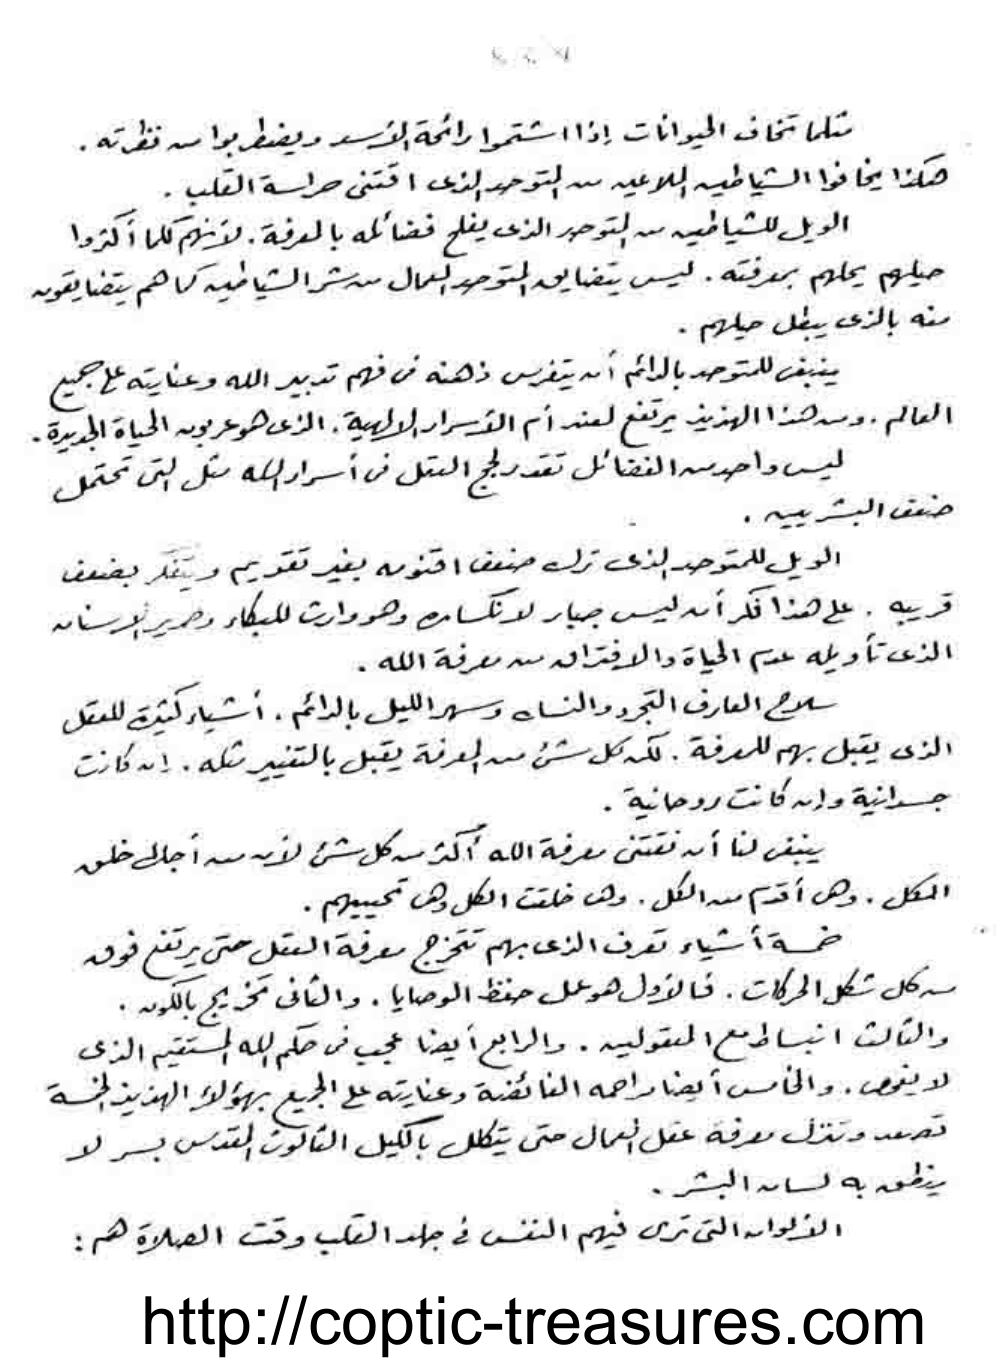 مثلما تخاف الحيوانات إذا اشتموا رائحة الأسد ويضطربوا من نظرته .
هكذا يخافوا الشياطين الملاعين من المتوحد الذى اقتنى حراسة القلب .
الويل للشياطين من المتوحد الذى يفلح فضائله بالمعرفة . لأنهم كلما أكثروا
حيلهم يحلهم بمعرفته . ليس يتضايق المتوحد العمال من شر الشياطين كما هم يتضايقون
منه بالذى يبطل حيلهم .
ينبغى للمتوحد بالدائم أن يتفرس ذهنه فى فهم تدبير الله وعنايته على جميع
العالم . ومن هذا الهذيذ يرتفع لعند أم الأسرار الالهية . الذى هو عربون الحياة الجديدة .
ليس واحد من الفضائل تقدر لجج العقل فى أسرار الله مثل التى تحتمل
ضعف البشريين .
الويل للمتوحد الذى ترك ضعف اقنومه بغير تقويم ويتفكر بضعف
قريبه . على هذا فكر أن ليس جبار لانكساره وهو وارث للبكاء وصرير الاسنان
الذى تأويله عدم الحياة والافتراق من معرفة الله .
سلاح العارف التجرد والنسك وسهر الليل بالدائم . أشياء كثيرة للعقل
الذى يقبل بهم للمعرفة . لكن كل شئ من المعرفة يقبل بالتغيير مثله . إن كانت
جسدانية وإن كانت روحانية .
ينبغى لنا أن نقتنى معرفة الله أكثر من كل شئ لأن من أجلك خلق
الكل . وهى أقدم من الكل . وهى خلقت الكل وهى تحييهم .
خمسة أشياء تعرف الذى بهم تتخرج معرفة العقل حتى يرتفع فوق
من كل شكل الحركات . فالأول هو عمل حفظ الوصايا . والثانى تخريج بالكون .
والثالث انبساط مع المعقولين . والرابع أيضا عجب فى حكم الله المستقيم الذى
لا يفحص . والخامس أيضا مراحمه الفائضة وعنايته على الجميع بهؤلاء الهذيذ الخمسة
تصعد وتنزل معرفة عقل العمال حتى يتكلل بإكليل الثالوث المقدس بسر لا
ينطق به لسان البشر .
الألوان التى ترى فيهم النفس فى جلد القلب وقت الصلاة هم :
http://coptic-treasures.com